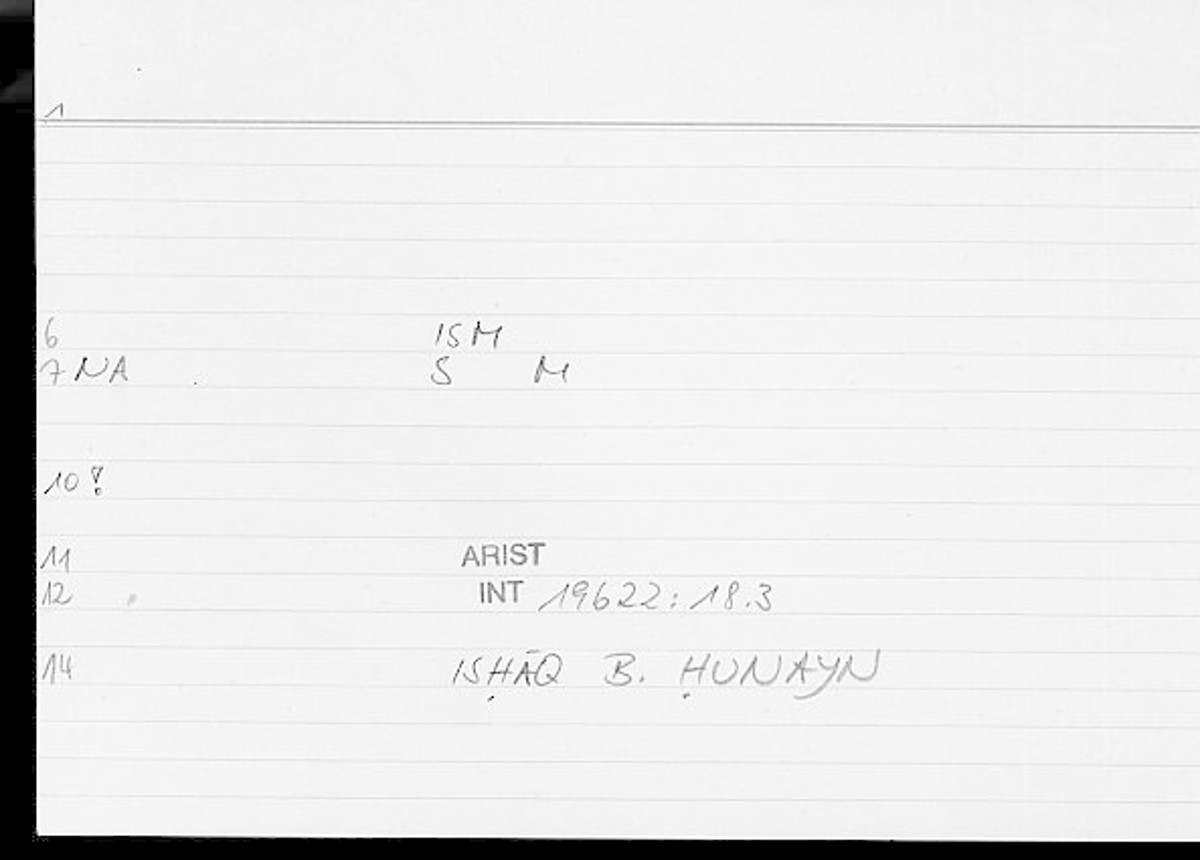 1
6 ISM
7 NA S M
10 !
11 ARIST
12 INT 19622: 18.3
14 ISḤĀQ B. ḤUNAYN